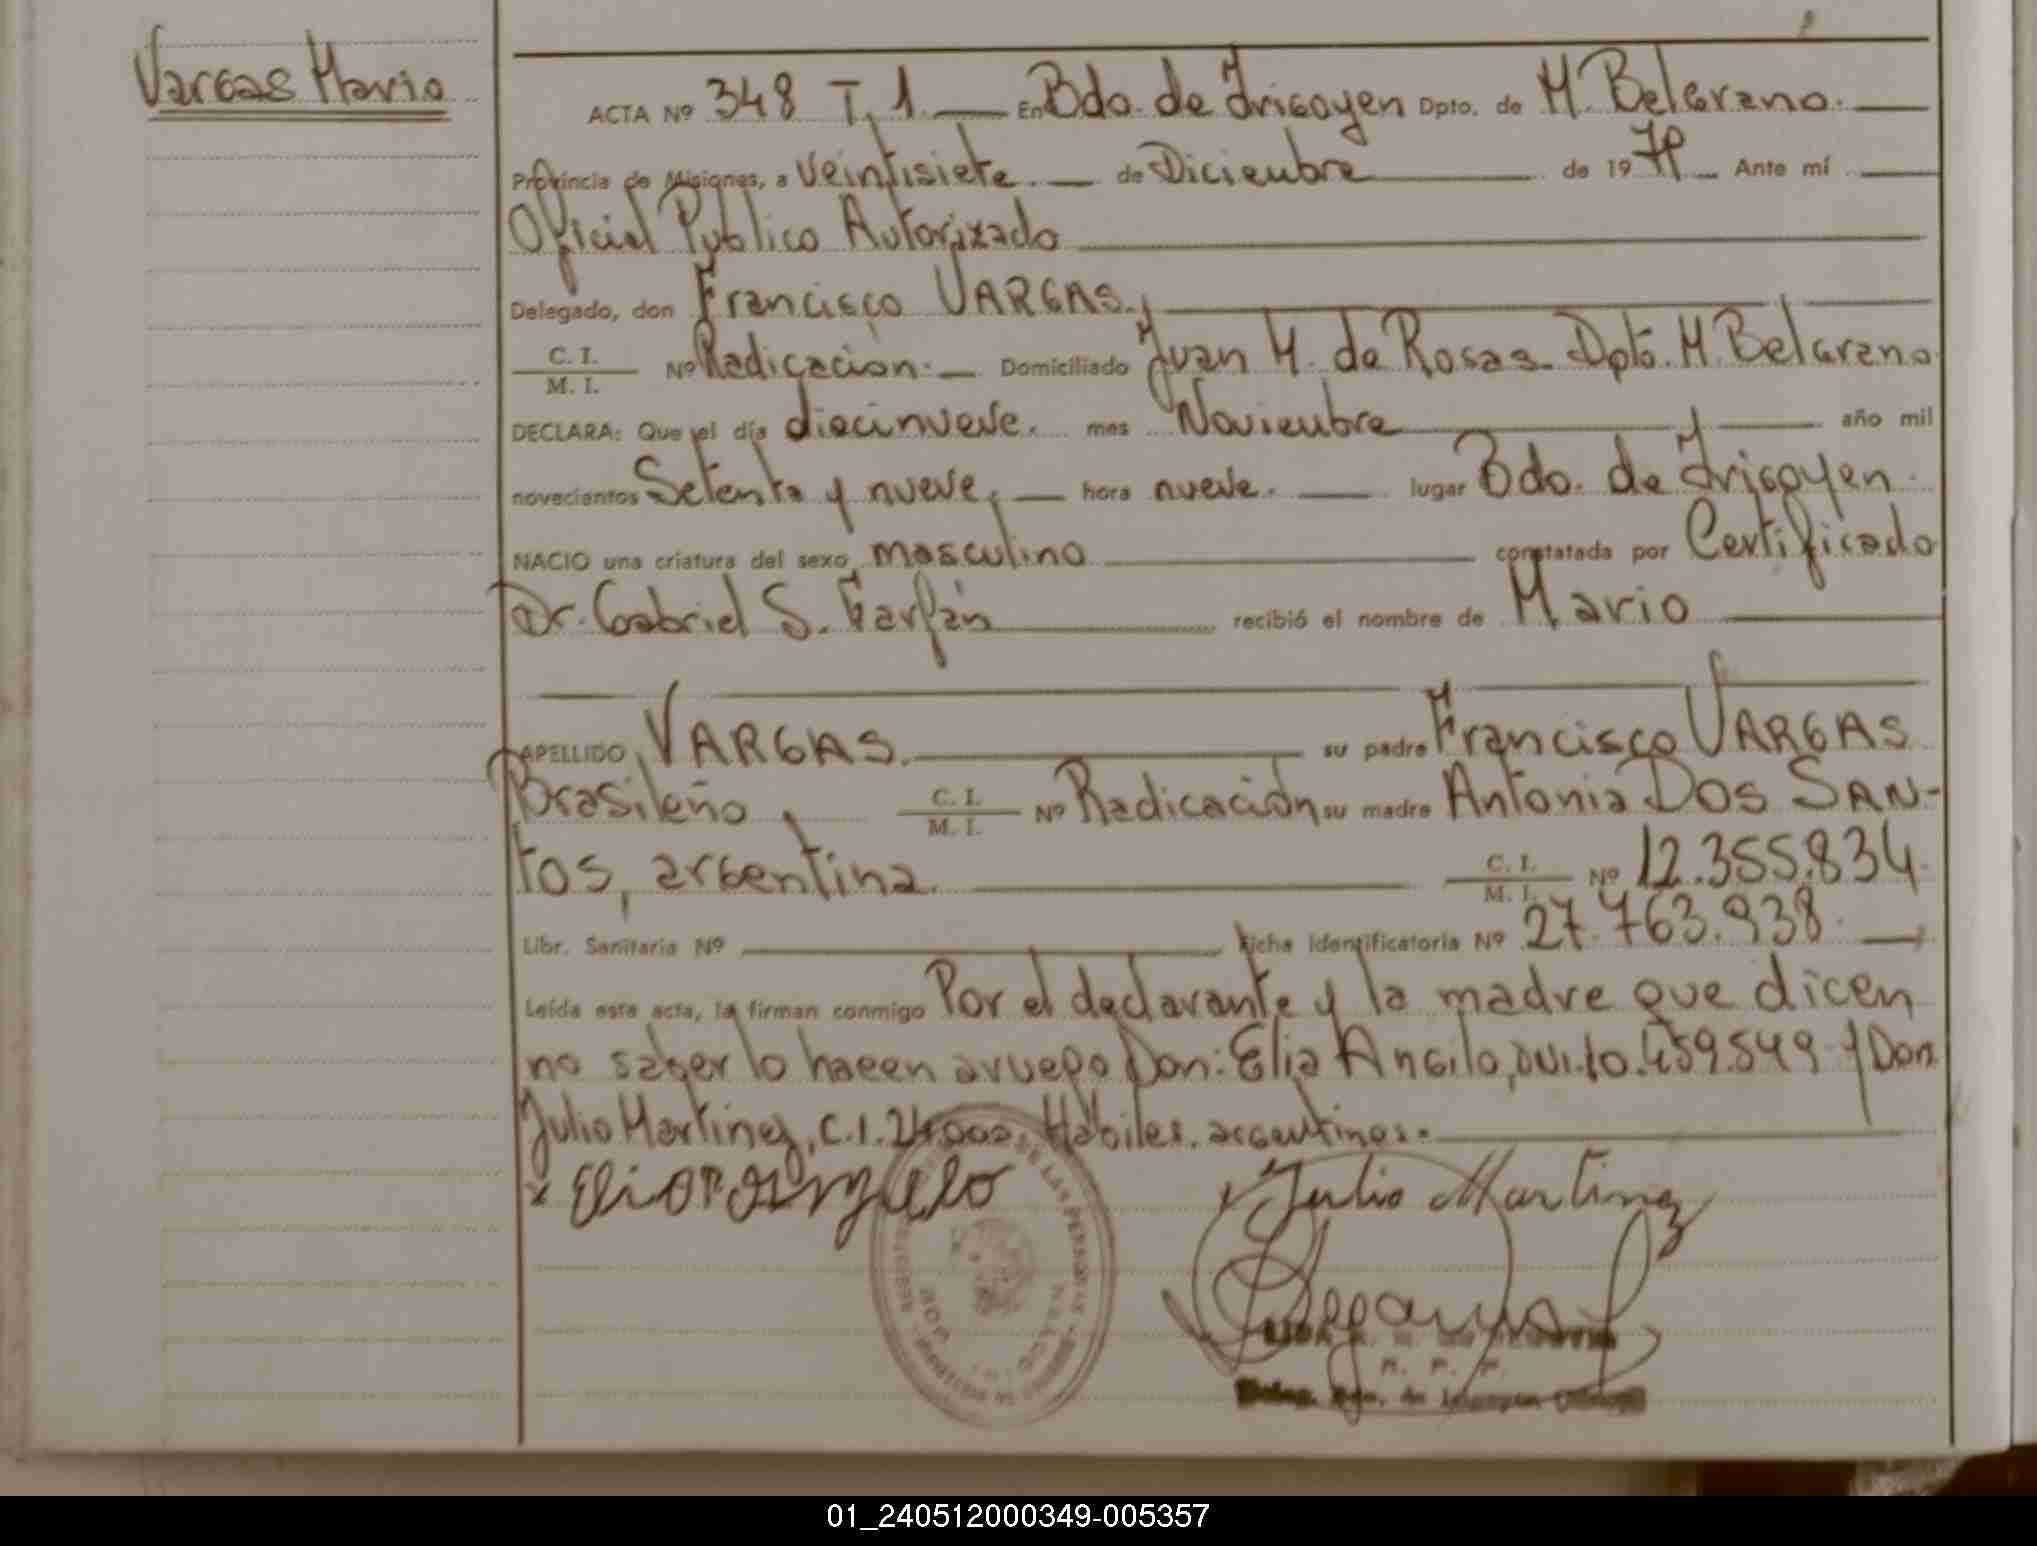 Vargas Mario
ACTA Nº 348 T. 1. En Bdo. de Irigoyen Dpto. de M. Belgrano.
Provincia de Misiones, a veintisiete. de Diciembre de 1979 Ante mí
Oficial Público Autorizado
Delegado, don Francisco VARGAS.,
C. I. / M. I. Nº Radicación. Domiciliado Juan M. de Rosas. Dpto. M. Belgrano
DECLARA: Que el día diecinueve. mes Noviembre año mil
novecientos Setenta y nueve, hora nueve. lugar Bdo. de Irigoyen.
NACIO una criatura del sexo masculino constatada por Certificado
Dr. Gabriel S. Farfán recibió el nombre de Mario
APELLIDO VARGAS. su padre Francisco VARGAS
Brasileño, C. I. / M. I. Nº Radicación su madre Antonia DOS SAN-
TOS, argentina. C. I. / M. I. Nº 12.355.834.
Libr. Sanitaria Nº Ficha identificatoria Nº 27.763.938.
Leída esta acta, la firman conmigo Por el declarante y la madre que dicen
no saber lo hacen a ruego Don: Elio Angilo, 459.549 y Don
Julio Martinez, C.I. Hábiles. argentinos.
Julio Martinez
01_240512000349-005357